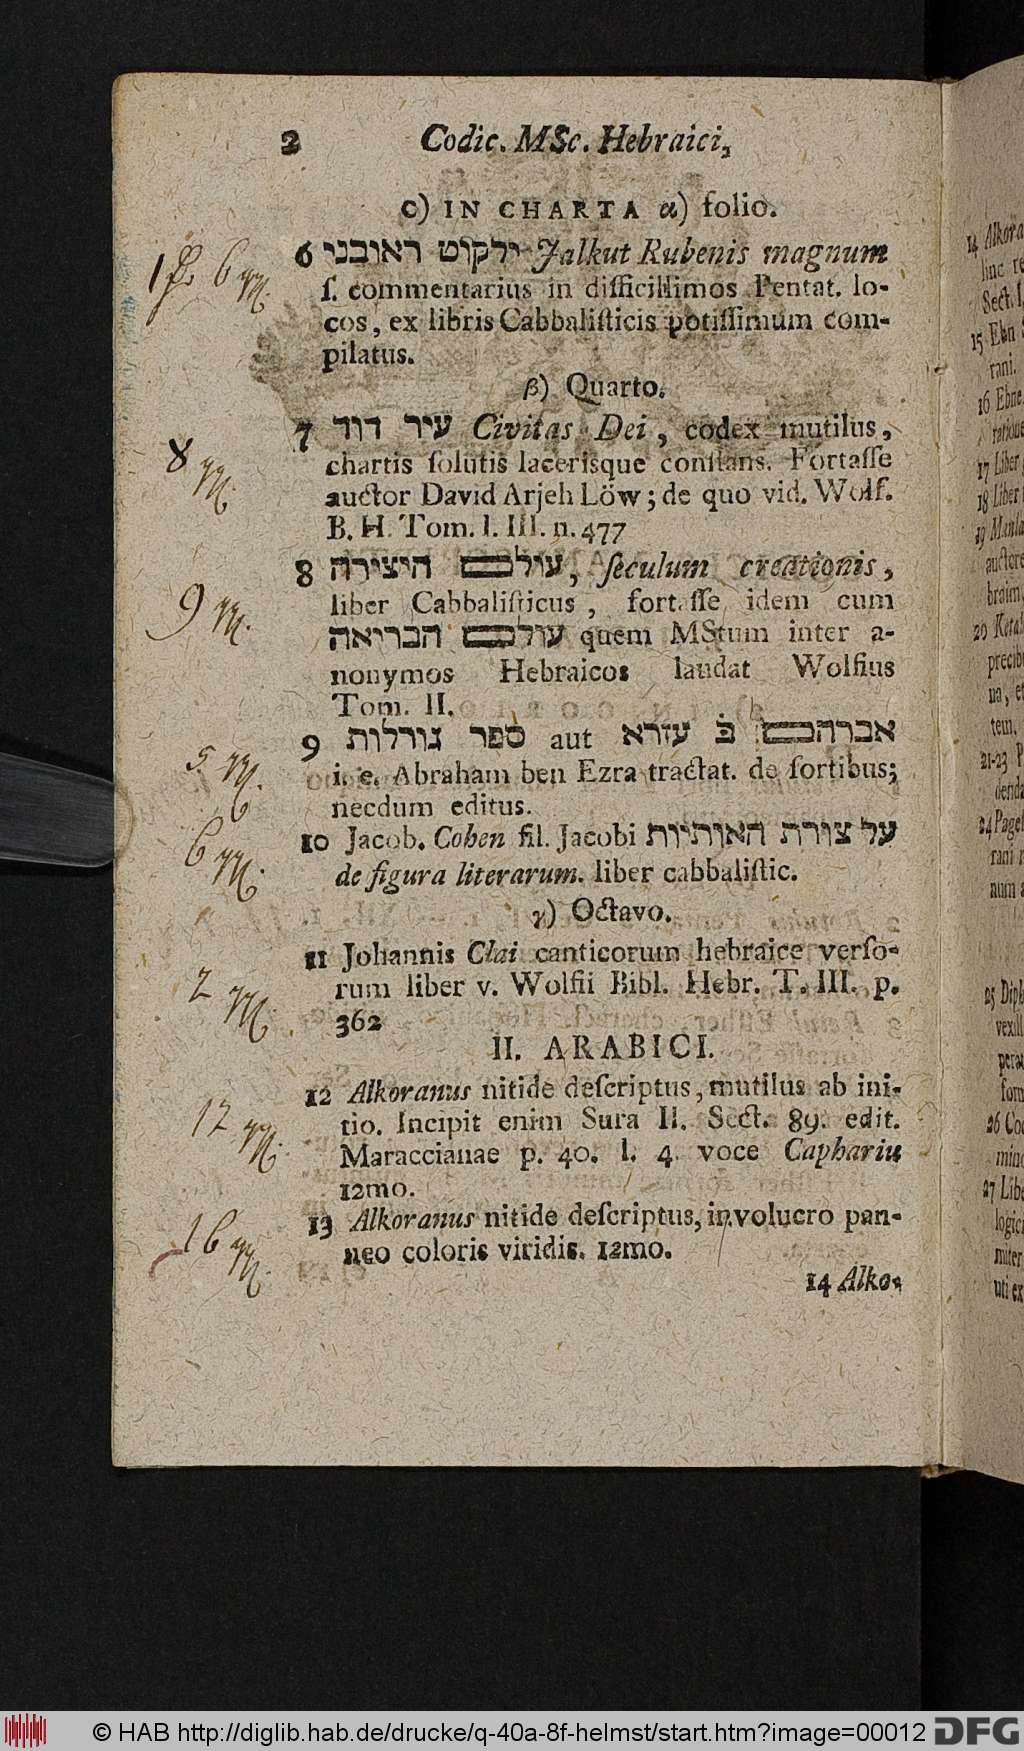 2 Codic. MSc. Hebraici,
c) IN CHARTA α) folio.
6 ילקוט ראובני Jalkut Rubenis magnum
ſ. commentarius in difficillimos Pentat. lo-
cos, ex libris Cabbaliſticis potiſſimum com-
pilatus.
β) Quarto.
7 עיר דוד Civitas Dei, codex mutilus,
chartis ſolutis lacerisque conſtans. Fortaſſe
auctor David Arjeh Löw; de quo vid. Wolf.
B. H. Tom. I. III. n. 477
8 עולם היצירה, ſeculum creationis,
liber Cabbaliſticus, fortaſſe idem cum
עולם הבריאה quem MStum inter a-
nonymos Hebraicos laudat Wolfius
Tom. II.
9 ספר גורלות aut אברהם בֿ עזרא
i. e. Abraham ben Ezra tractat. de ſortibus;
necdum editus.
10 Jacob. Cohen fil. Jacobi על צורת האותיות
de figura literarum. liber cabbaliſtic.
γ) Octavo.
11 Johannis Clai canticorum hebraice verſo-
rum liber v. Wolfii Bibl. Hebr. T. III. p.
362
II. ARABICI.
12 Alkoranus nitide deſcriptus, mutilus ab ini-
tio. Incipit enim Sura II. Sect. 89. edit.
Maraccianae p. 40. l. 4 voce Caphariu
12mo.
13 Alkoranus nitide deſcriptus, involucro pan-
neo coloris viridis. 12mo.
14 Alko-
1 6
8
9
5
6
2
12
16
14 Alkora
15 Ebn
rani.
16 Ebne
17 Liber
18 Liber
precib
na, et
tem.
21-23
rani
num a
vexill
27 Libe
logic
miter
uti ex
© HAB http://diglib.hab.de/drucke/q-40a-8f-helmst/start.htm?image=00012 DFG